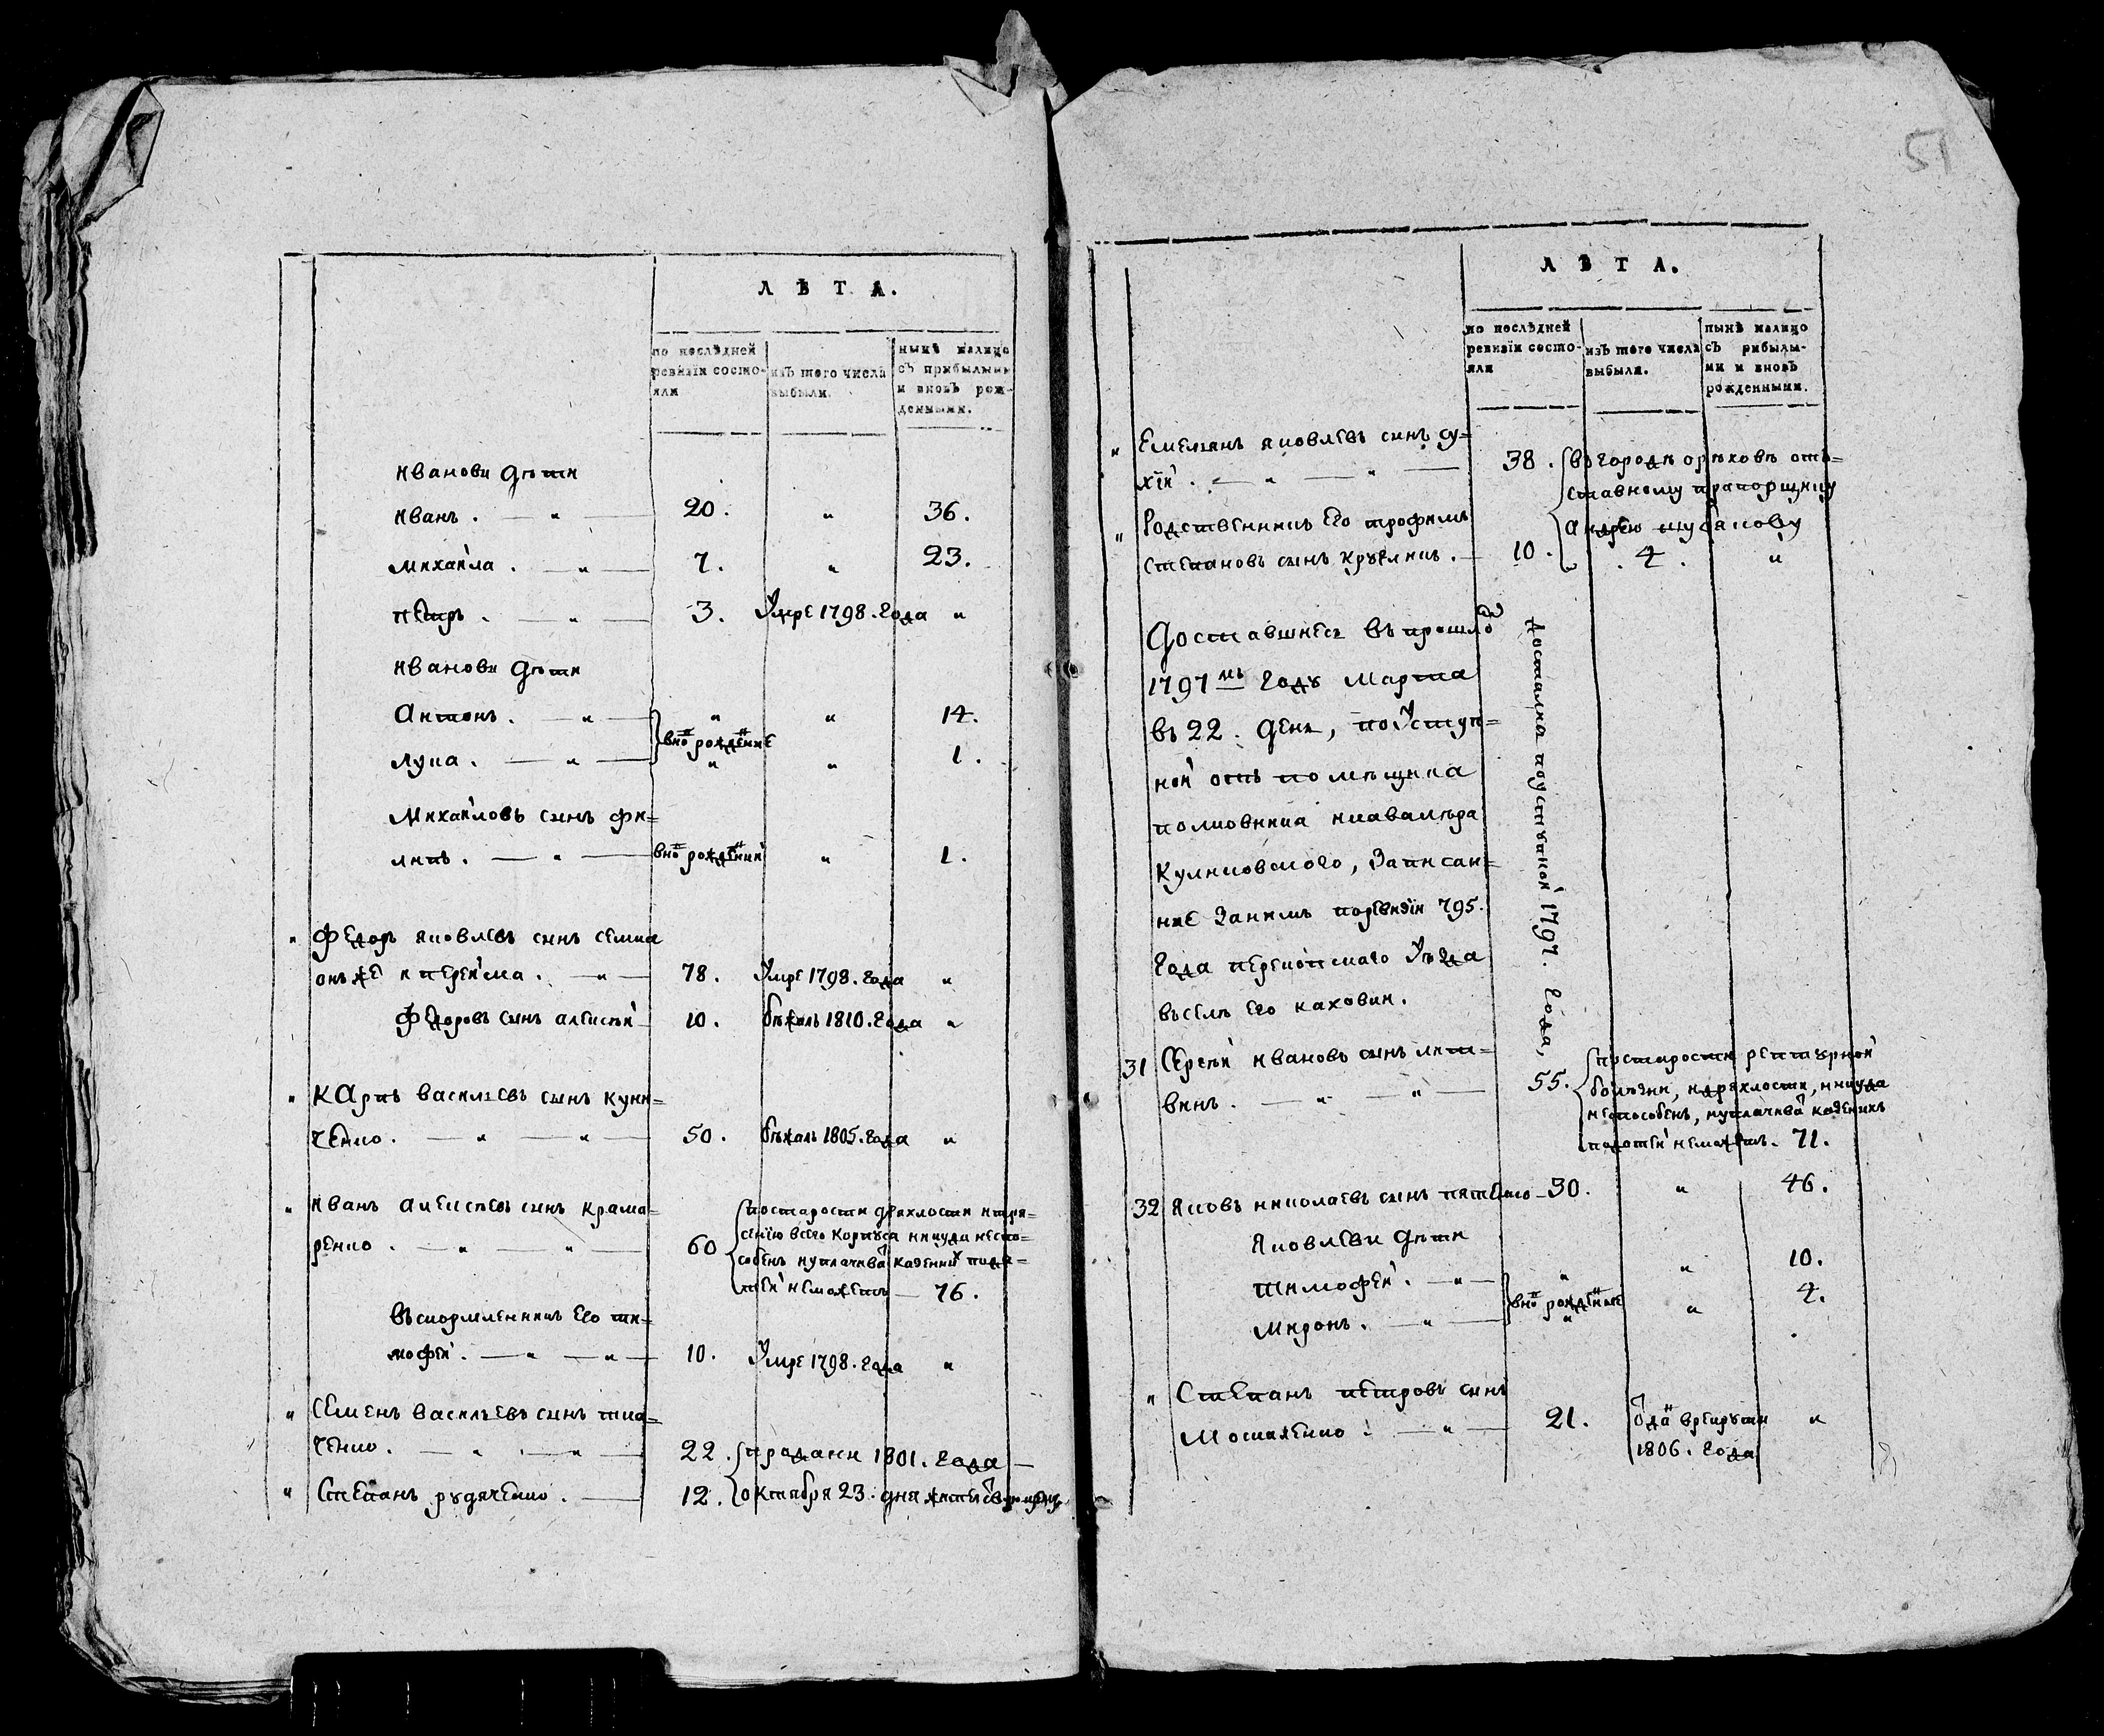 ЛѢТА.
по послѣдней ревизіи состояли
изъ того числа выбыли.
нынѣ налицо съ прибылыми и вновь рожденными.
Иванови дѣти
Иванъ . — " — 20. " 36.
Михайла . — " — 7. " 23.
Петръ . — " — 3. Умре 1798. Года "
Иванови дѣти
Антонъ . — " — " " 14.
вно рождение
Лупа . — " — " " 1.
Михайловъ сынъ Фи=
липъ . — " — вно рождений " 1.
" Федоръ Яковлевъ сынъ Семка
онъ же и перейма . — " — 78. Умре 1798. Года "
Федоровъ сынъ Алексѣй — 10. бѣжалъ 1810. Года "
" Карпъ Васильевъ сынъ Куни=
ченко . — " — " — 50. бѣжалъ 1805. Года "
" Иванъ Алексѣевъ сынъ Крама=
ренко . — " — " — 60
постарости дряхлости итря=
сению всего корпуса никуда неспо=
собенъ иуплачива казених пода=
тей неможетъ — 76.
Въскормленникъ его Ти=
мофей . — " — " — 10. Умре 1798. Года "
" Семенъ Васильевъ сынъ Тка=
ченко . — " — " — 22. проданы 1801. Года —
" Степанъ Рудяченко . — 12. октября 23. дня
51
ЛѢТА.
по послѣдней ревизіи состояли
изъ того числа выбыли.
нынѣ налицо съ рибылыми и вновь рожденными.
" Емельянъ Яковлевъ синъ Су=
хій . — " — " — 38. вгородѣ орѣховѣ отъ=
ставному прапорщику
" Родственникъ Его Трофимъ Андрею Шубакову
Степановъ сынъ Кругликъ . — 10. 4. "
Доставшиесь въ прошло
1797мъ Году Марта
въ 22. день, поУступ=
ной отъ помѣщика
полковника икавалѣра
Куликовского, Записан=
ние Занимъ поревизіи 795.
Года перекопскаго Уѣзда
въселѣ Его каховки.
досталися поуступной 1797. Года,
31 Сергѣй Ивановъ сынъ Лит=
винъ . — " — " — 55.
постарости рептурной
болѣзни, идряхлости, никуда
неспособенъ, иуплачива казенихъ
податей неможетъ. 71.
32 Яковъ Николаевъ сынъ Пятенко — 30. " 46.
Яковлеви дѣти
Тимофей . — " — " " 10.
вно рождение
Миронъ . — " — " " 4.
" Степанъ Петровъ синъ
Москаленко . — " — 21. ода врекруты "
1806. Года